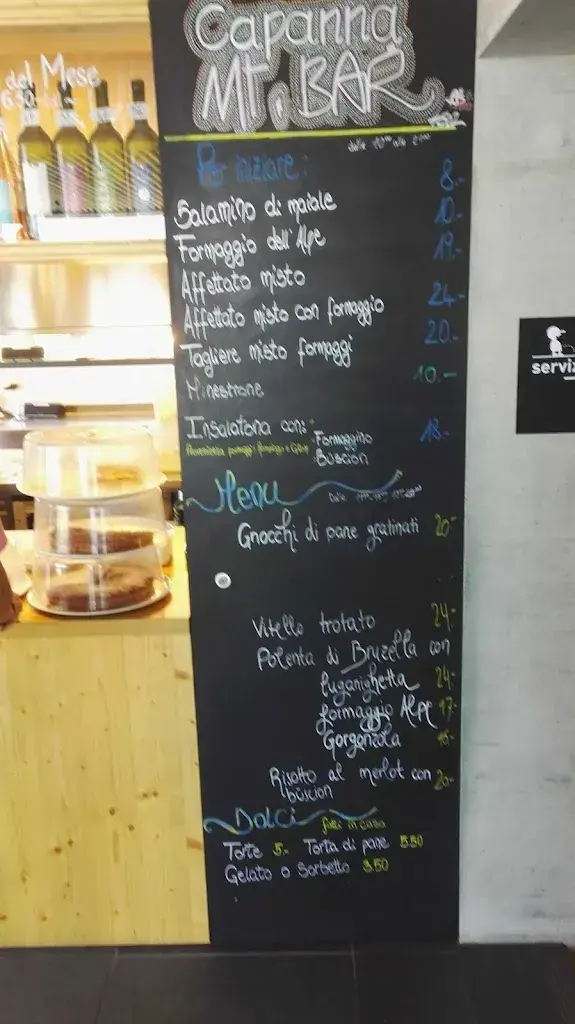 del Mese
Capanna
Mt. BAR
Per iniziare:
Salamino di maiale 8.-
Formaggio dell'Alpe 10.-
Affettato misto 19.-
Affettato misto con formaggio 24.-
Tagliere misto formaggi 20.-
Minestrone 10.-
Insalatona con: Formaggino 18.-
Büscion
Menu
Gnocchi di pane gratinati 20.-
Vitello trotato 24.-
Polenta di Bruzella con
luganighetta 24.-
formaggio Alpe 17.-
Gorgonzola
Risotto al merlot con 20.-
büscion
Dolci fatti in casa
Torte 5.- Torta di pane 5.50
Gelato o Sorbetto 3.50
serviz